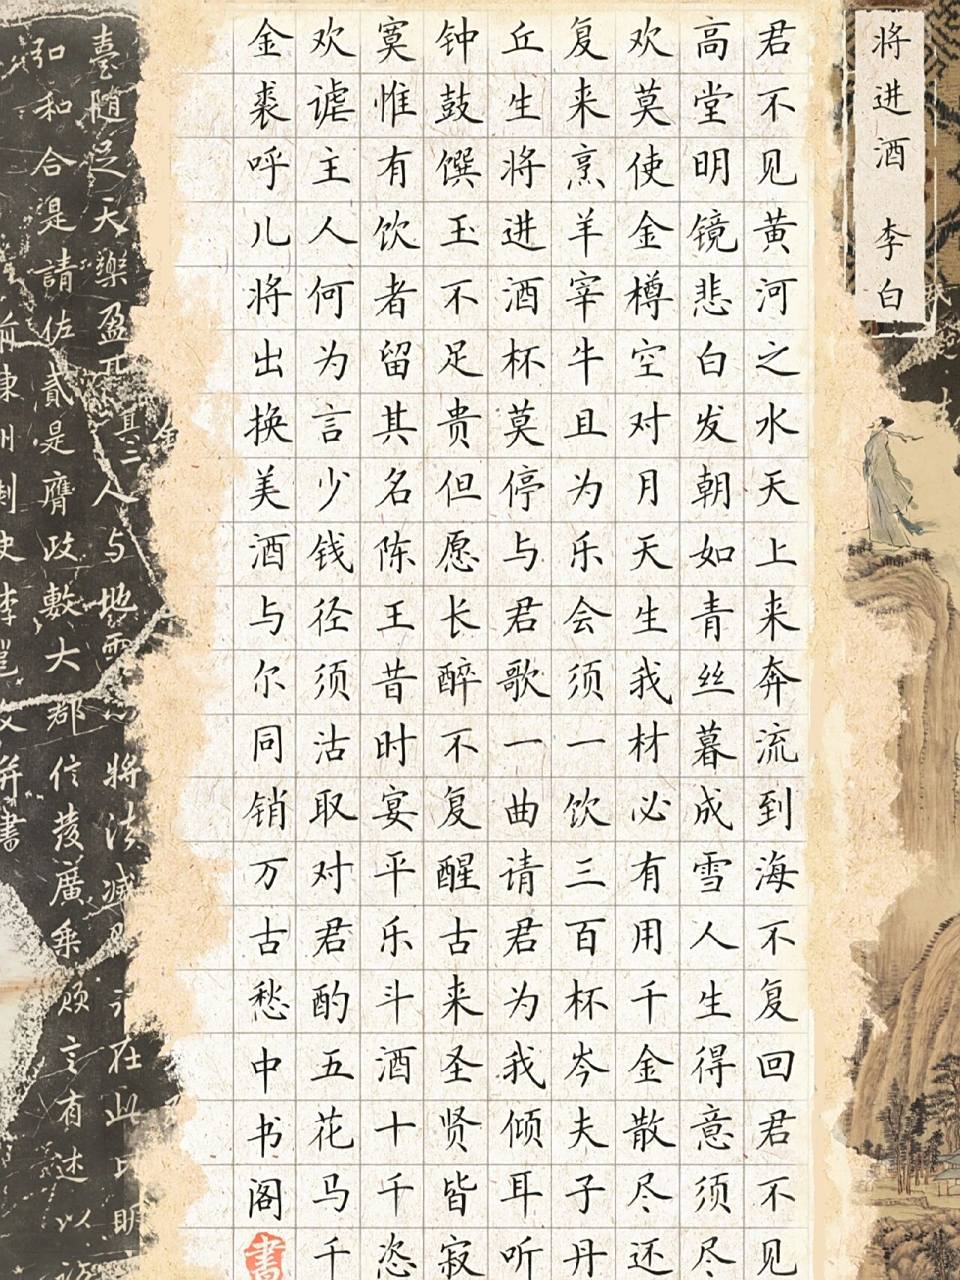 将进酒 李白
君不见黄河之水天上来奔流到海不复回君不见
高堂明镜悲白发朝如青丝暮成雪人生得意须尽
欢莫使金樽空对月天生我材必有用千金散尽还
复来烹羊宰牛且为乐会须一饮三百杯岑夫子丹
丘生将进酒杯莫停与君歌一曲请君为我倾耳听
钟鼓馔玉不足贵但愿长醉不复醒古来圣贤皆寂
寞惟有饮者留其名陈王昔时宴平乐斗酒十千恣
欢谑主人何为言少钱径须沽取对君酌五花马千
金裘呼儿将出换美酒与尔同销万古愁中书阁
書
其二
和合是請佐貳是膺政數大都